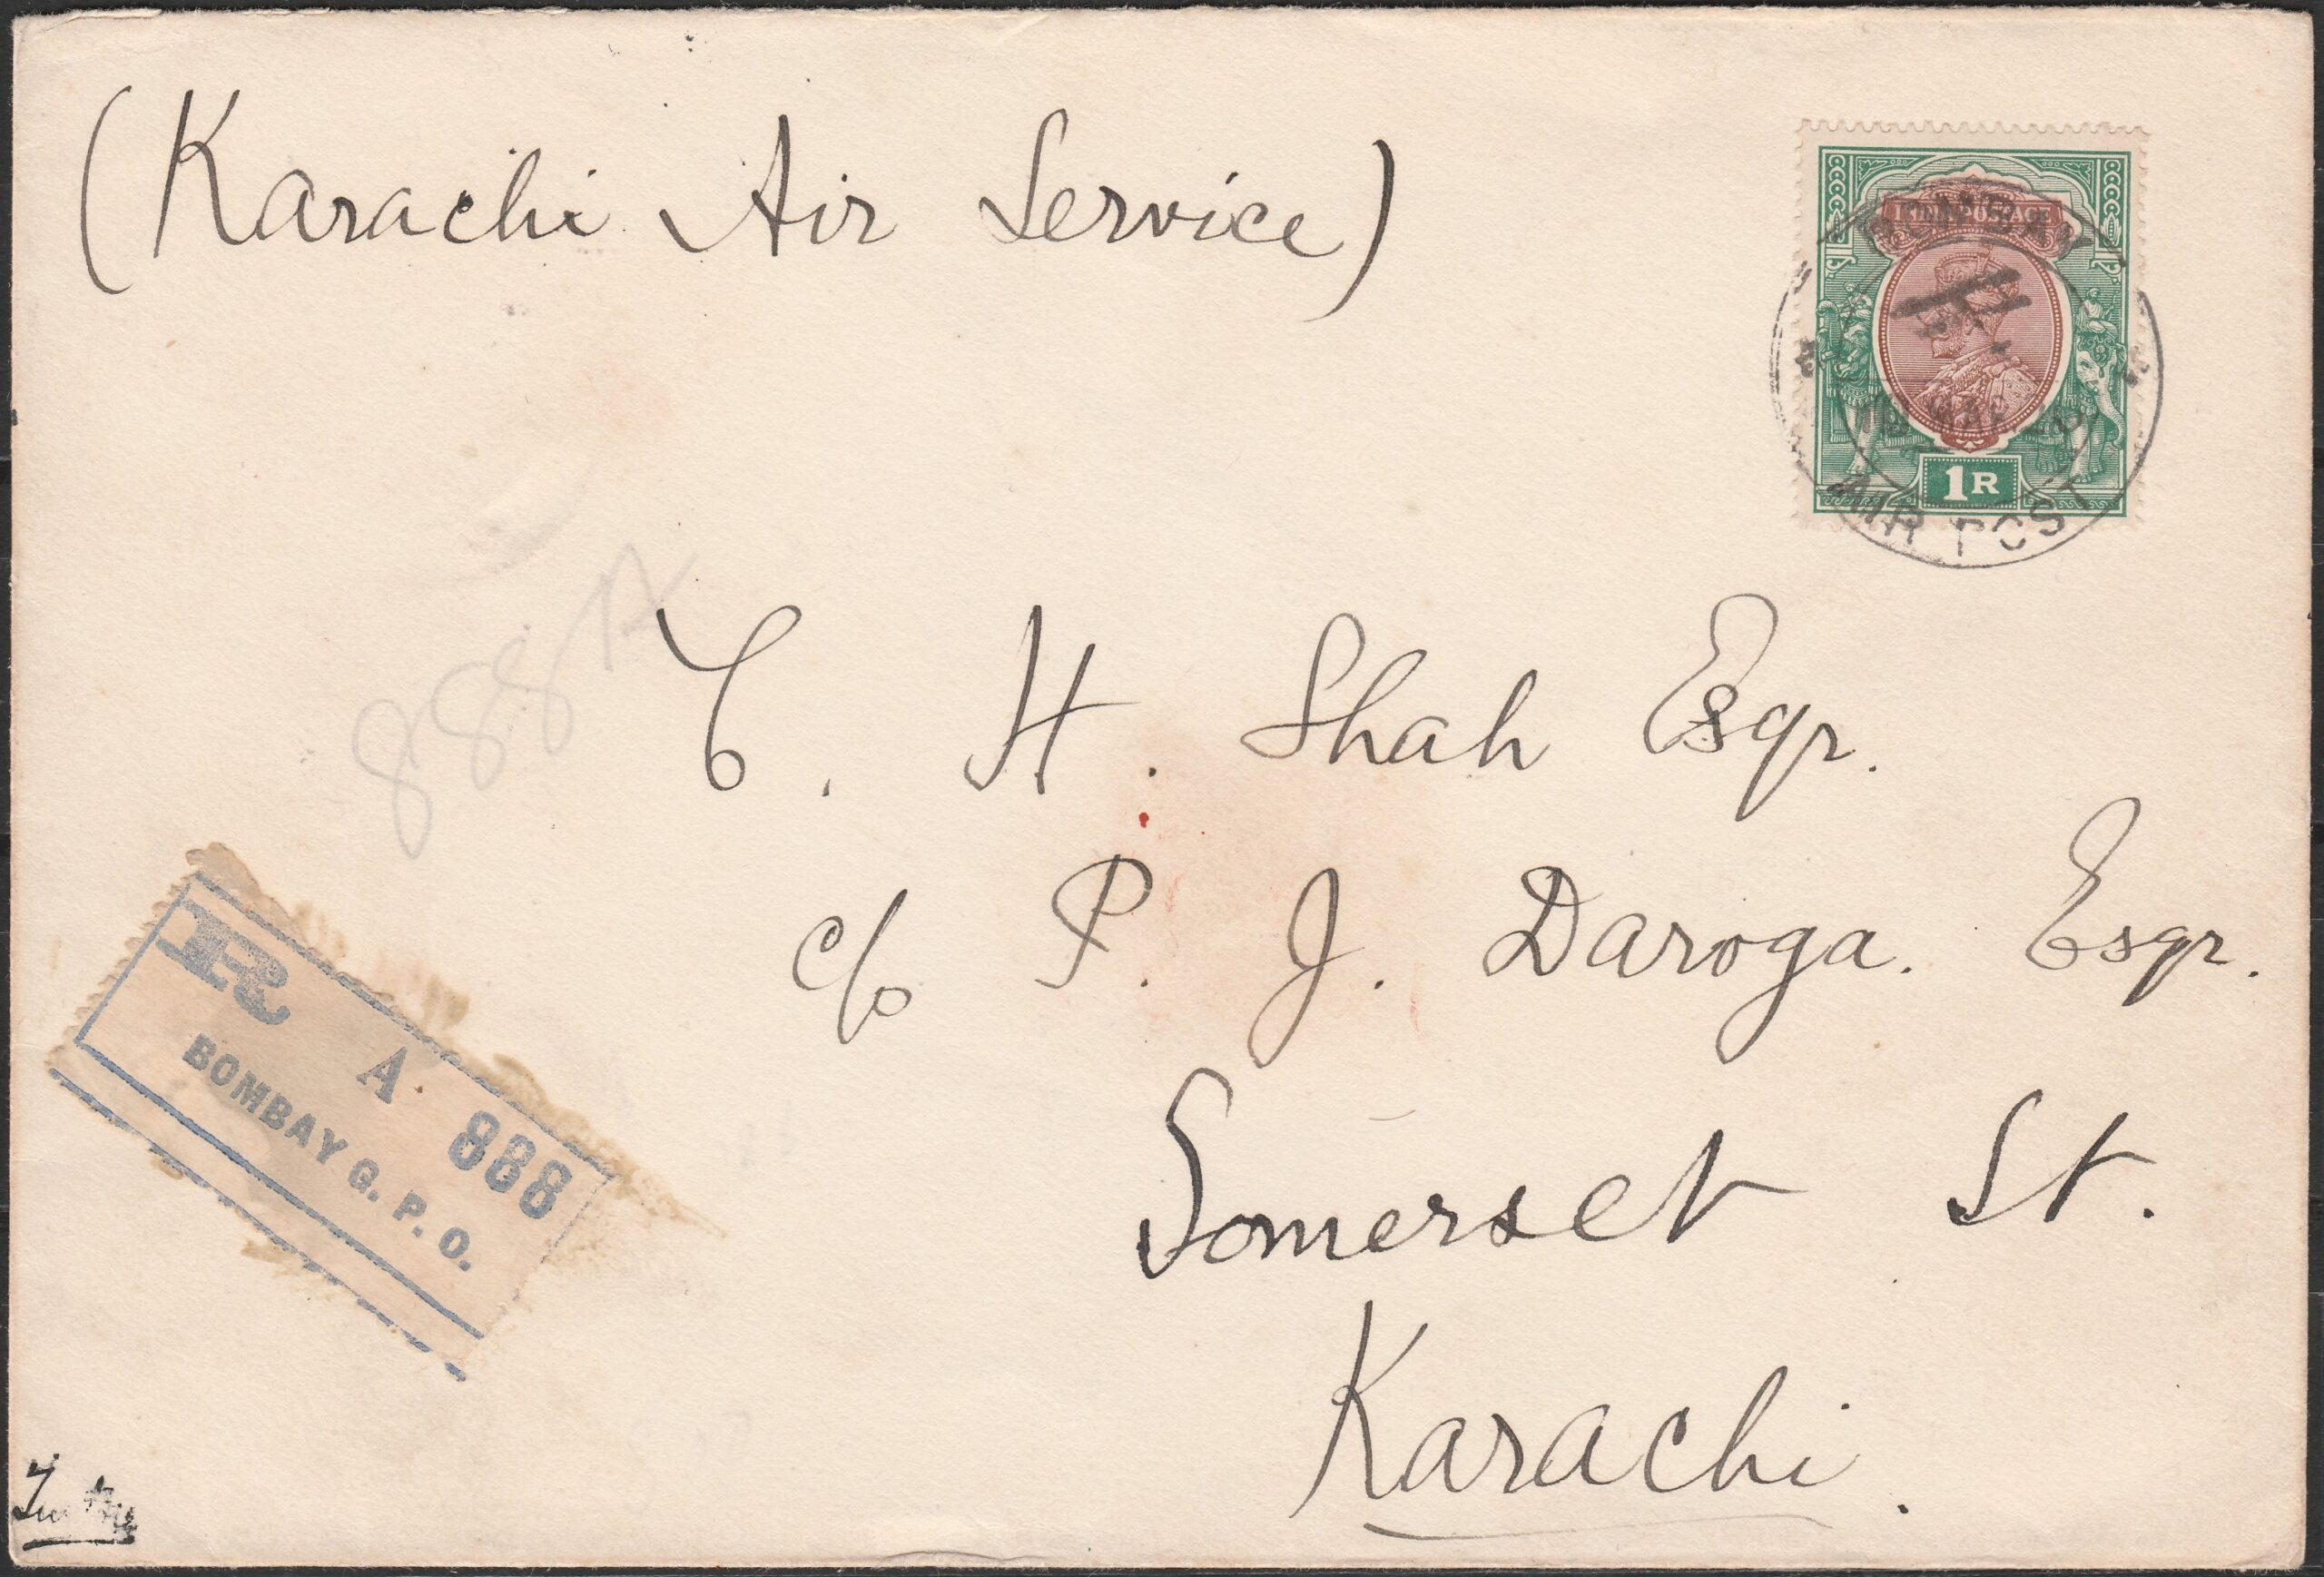 (Karachi Air Service)
INDIA POSTAGE
BOMBAY
MAR
1R
AIR POST
888 A
C. H. Shah Esqr.
c/o P. J. Daroga. Esqr.
Somerset St.
Karachi.
R A 888
BOMBAY G. P. O.